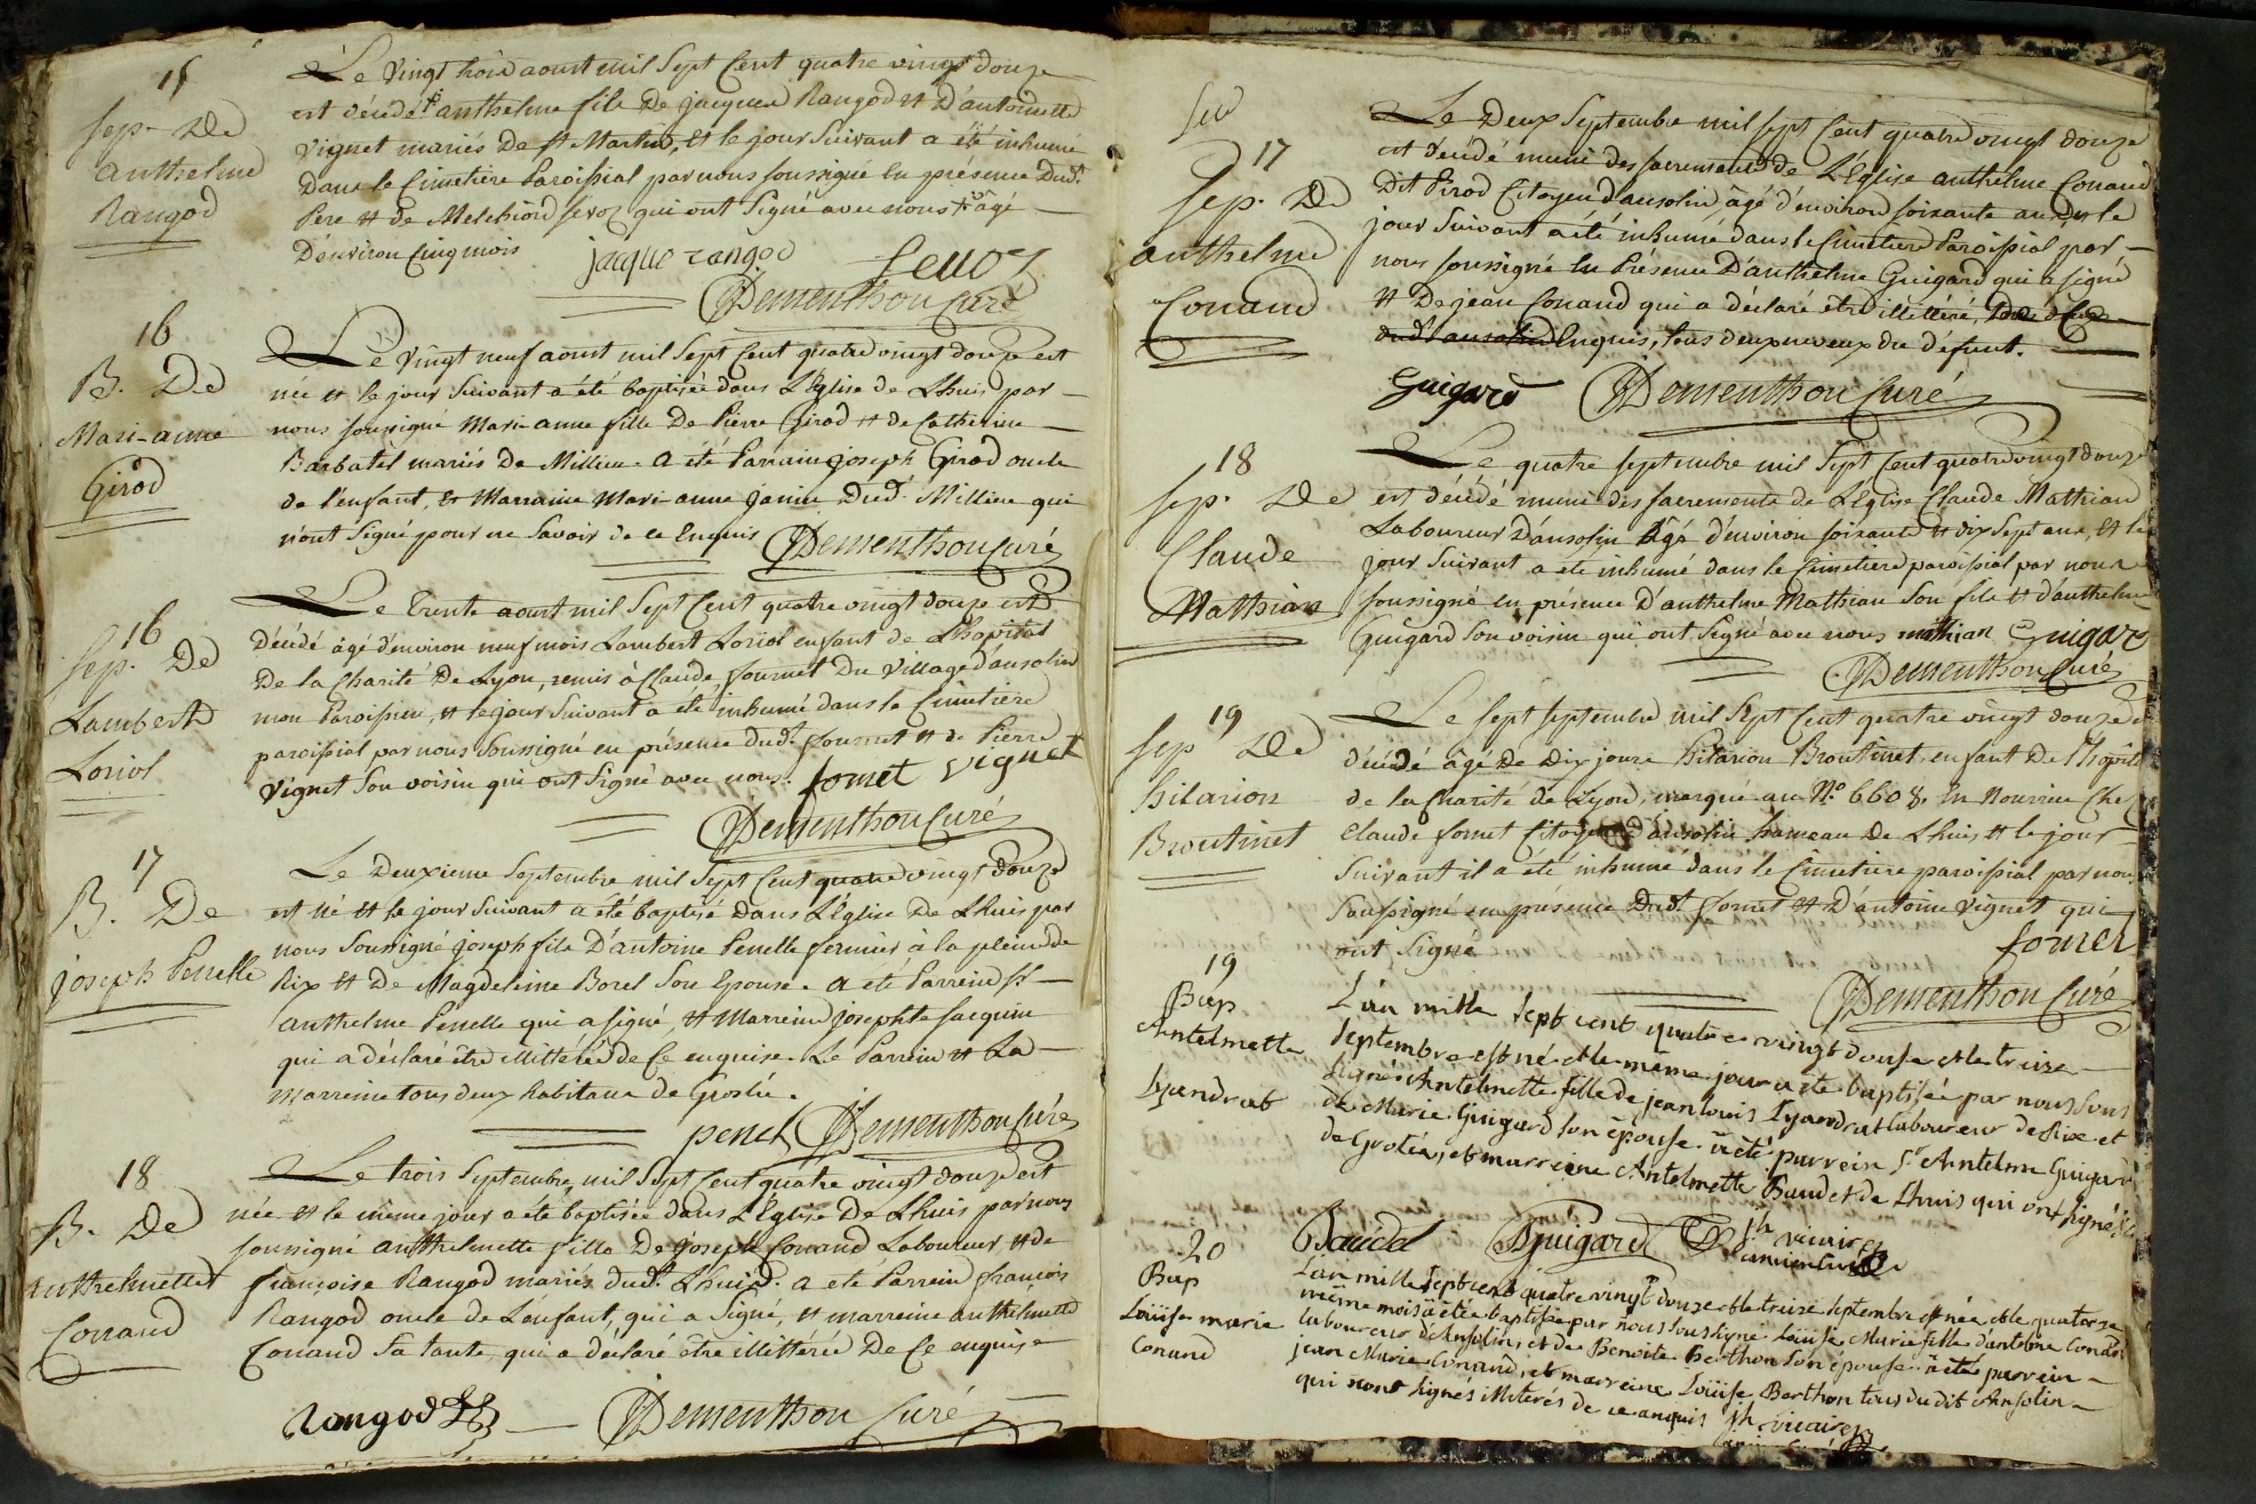 15
Sep. De
anthelme
Rangod
Le vingt trois aoust mil Sept Cent quatre vingt douze
est décédé anthelme fils De jacques Rangod et D'antoinette
vignet mariés De St Martin, et le jour Suivant a été inhumé
Dans le Cimetiere Paroissial par nous soussigné En présence Dud.
Pere et de Melchiord qui ont Signé avec nous âgé
D'environ Cinq mois jacque rangod
Dementhon Curé
16
B. De
Mari-anne
Girod
Le vingt neuf aoust mil Sept Cent quatre vingt douze est
née et le jour Suivant a été baptisée dans L'Eglise de Lhuis par
nous soussigné Mari-anne fille De Pierre Girod et de Catherine
Barbatel mariés De Millieu. a été Parrain joseph Girod oncle
de l'enfant, et Marraine Mari-anne janin Dud. Millieu qui
n'ont Signé pour ne Savoir de ce Enquis Dementhon Curé
16
Sep. De
Lambert
Loriol
Le trente aoust mil Sept Cent quatre vingt douze est
Décédé âgé d'environ neuf mois Lambert Loriol enfant de Lhopital
De la Charité De Lyon, remis à Claude fournet Du village d'ansolin
mon Paroissien, et le jour Suivant a été inhumé dans le Cimetiere
paroissial par nous Soussigné en présence dud. fournet et de Pierre
Vignet Son voisin qui ont Signé avec nous. fornet vignet
Dementhon Curé
17
B. De
joseph Penelle
Le Deuxieme Septembre mil Sept Cent quatre vingt Douze
est né et le jour Suivant a été baptisé Dans L'Eglise De Lhuis par
nous Soussigné joseph fils D'antoine Penelle fermier à la pleine de
Rix et De Magdeleine Borel Son Epouse. a été Parrein Sr
anthelme Penelle qui a signé, et Marreine josephte jacquin
qui a déclaré être illittérée de Ce enquise. Le Parrein et La
marreine tous deux habitans de Groslée.
penel Dementhon Curé
18
B. De
anthelmette
Conand
Le trois Septembre mil Sept Cent quatre vingt douze est
née et le même jour a été baptisée dans L'Eglise De Lhuis par nous
soussigné anthelmette fille De joseph Conand Laboureur, et de
françoise Rangod mariés dud. Lhuis. a été Parrein françois
Rangod oncle de L'enfant, qui a Signé, et marreine anthelmette
Conand Sa tante, qui a déclaré être illittérée De Ce enquise
Rangod Dementhon Curé
17
Sep. De
anthelme
Conand
Le Deux Septembre mil sept Cent quatre vingt douze
est décédé muni des sacrements de L'Église anthelme Conand
Dit Pirod Citoyen d'ansolin, âgé d'environ soixante ans, et le
jour Suivant a été inhumé dans le Cimetiere Paroissial par
nous soussigné En Présence D'anthelme Guigard qui a signé
et De jean Conand qui a déclaré être illittéré,
Enquis, tous deux neveux du défunt.
Guigard Dementhon Curé
18
Sep. De
Claude
Mathian
Le quatre septembre mil Sept Cent quatre vingt douze
est décédé muni des sacrements de L'Eglise Claude Mathian
Laboureur D'ansolin âgé d'environ soixante et dix Sept ans, et le
jour Suivant a été inhumé dans le Cimetiere paroissial par nous
soussigné En présence D'anthelme Mathian Son fils et d'anthelme
Guigard Son voisin qui ont Signé avec nous mathian Guigard
Dementhon Curé
19
Sep De
hilarion
Broutinet
Le sept septembre mil Sept Cent quatre vingt douze
décédé âgé De Dix jours hilarion Broutinet, enfant De l'hopital
de la Charité de Lyon, marqué au N.º 6608. En Nourrice Chez
Claude fornet Citoyen d'ansolin hameau De Lhuis et le jour
Suivant il a été inhumé dans le Cimetiere paroissial par nous
Soussigné en présence Dud. fornet et D'antoine vignet qui
ont Signé fornet
Dementhon Curé
19
Bap
Antelmette
Lyandrat
L'an mille sept cent quatre vingt douse et le treize
septembre est né et le même jour a été baptisée par nous sous
signé Antelmette fille de jean louis Lyandrat laboureur de Rix et
de Marie Guigard son épouse a été parrein Sr Antelme Guigard
de Grolée, et marreine Antelmette Baudet de Lhuis qui ont signé
Baudet Guigard jh vicaire
20
Bap
Loüise marie
Conand
L'an mille sept cent quatre vingt douze et le treize septembre est née et le quatorze
même mois a étée baptisée par nous soussigné Loüise Marie fille d'antelme Conand
laboureur d'Ansolin, et de Benoite Berthon son épouse a été parrein
jean Marie Conand, et marreine Loüise Berthon tous du dit Ansolin
qui n'ont signés illiterés de ce enquis jh vicaire